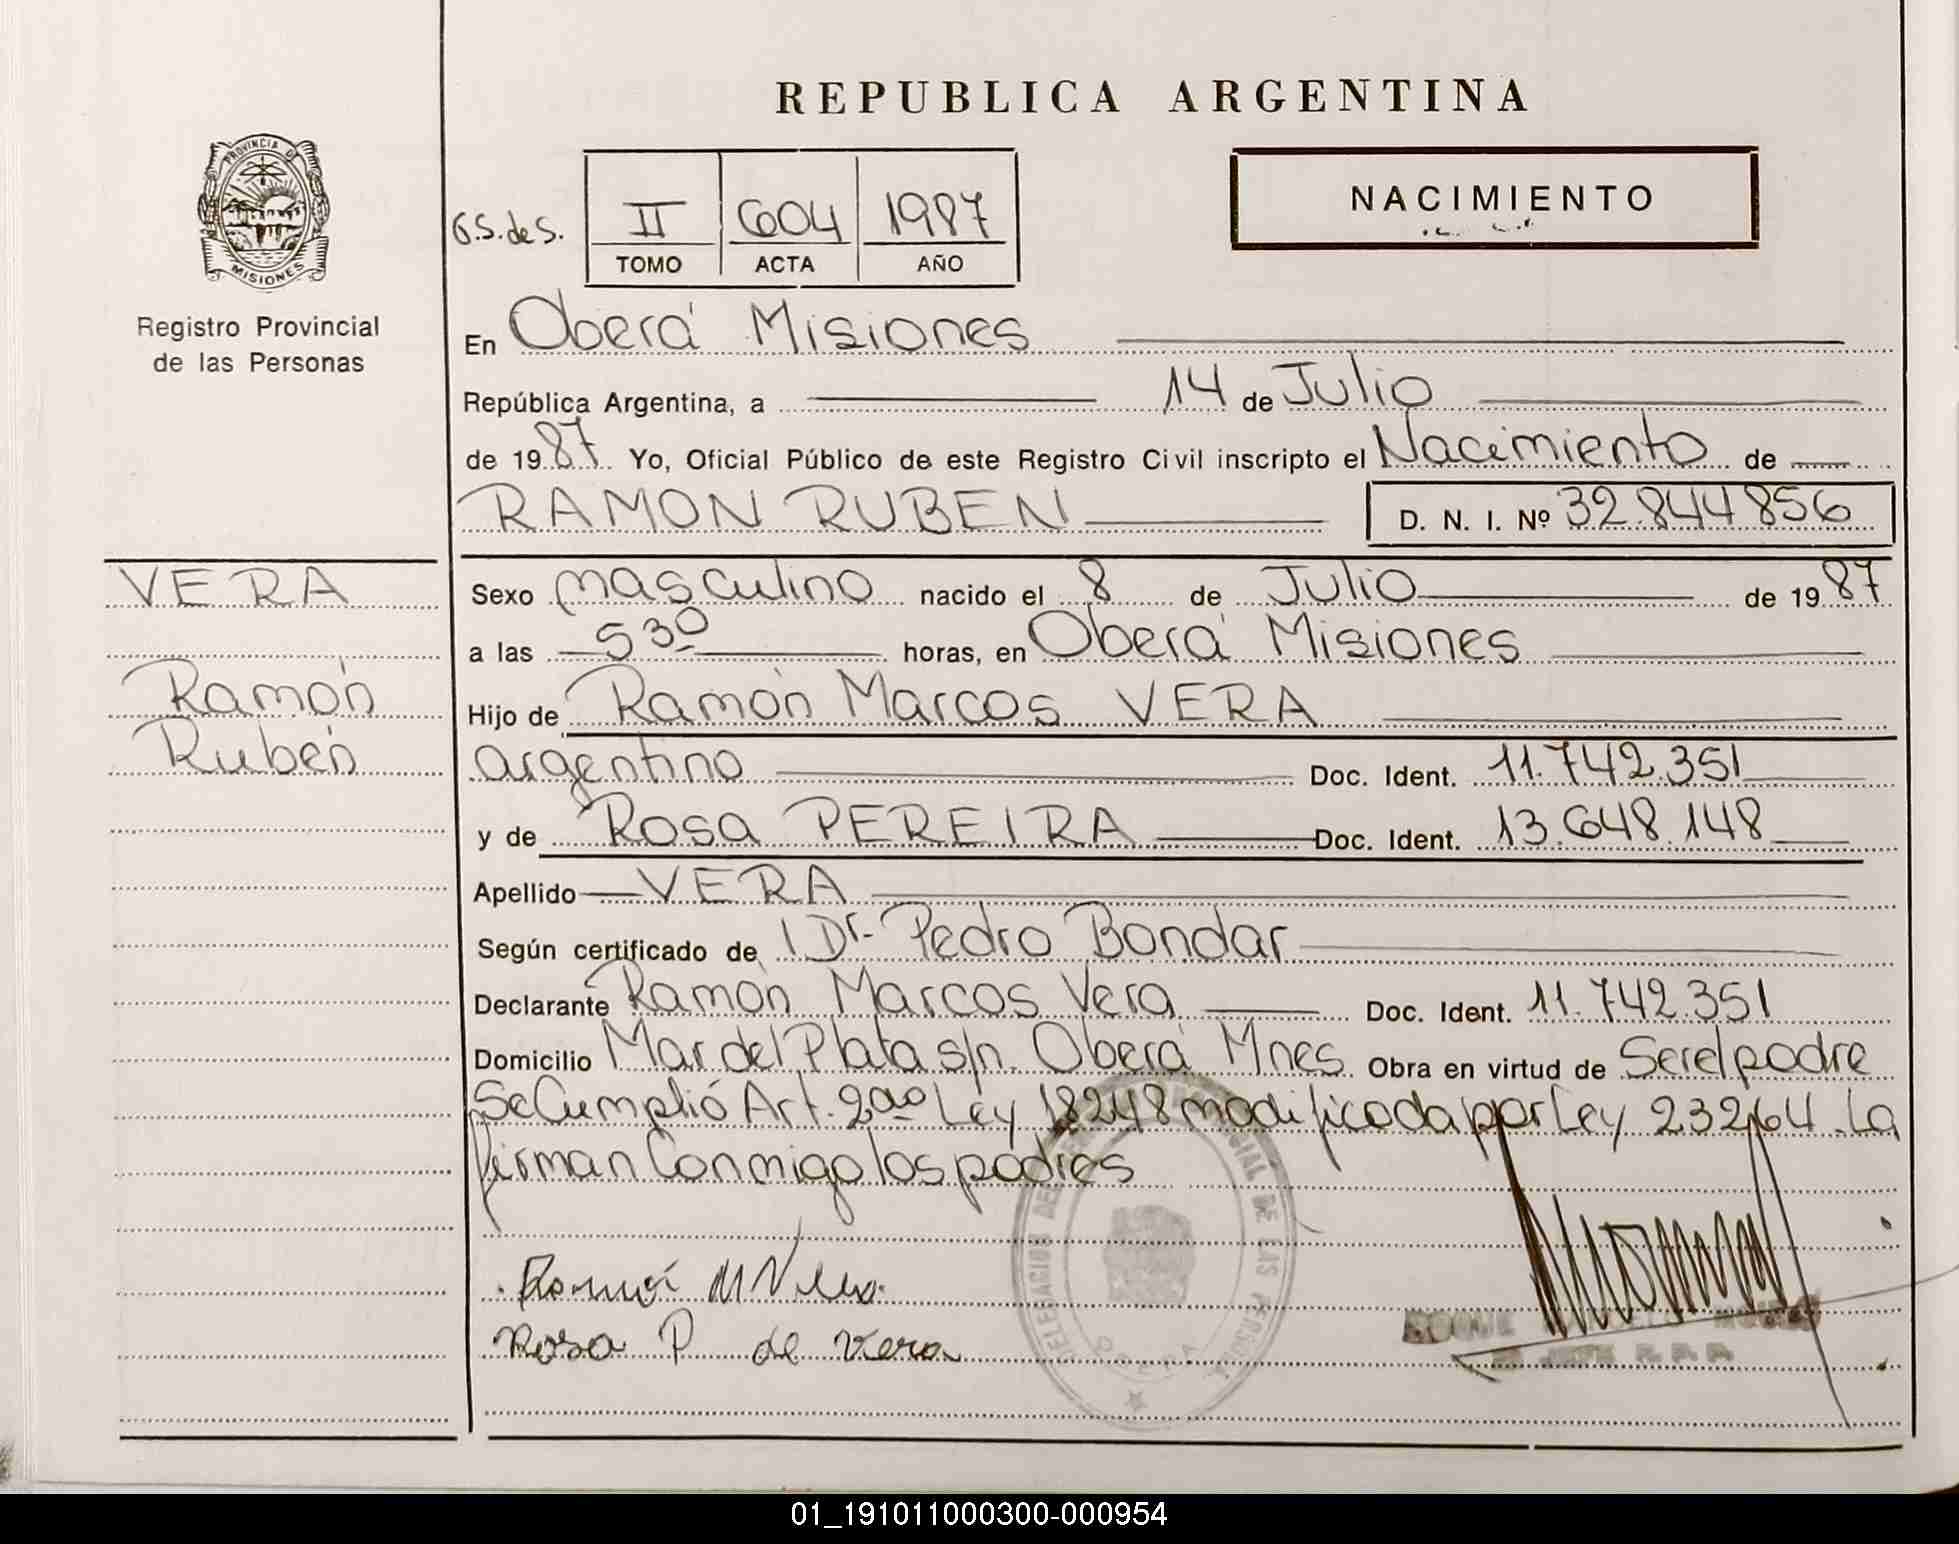 REPUBLICA ARGENTINA
PROVINCIA DE
MISIONES
Registro Provincial
de las Personas
G.S. de S.
II 604 1987
TOMO ACTA AÑO
NACIMIENTO
En Oberá Misiones
República Argentina, a 14 de Julio
de 1987 Yo, Oficial Público de este Registro Civil inscripto el Nacimiento de
RAMON RUBEN D. N. I. Nº 32.844856
VERA
Ramón
Rubén
Sexo masculino nacido el 8 de Julio de 1987
a las 530 horas, en Oberá Misiones
Hijo de Ramón Marcos VERA
argentino Doc. Ident. 11.742.351
y de Rosa PEREIRA Doc. Ident. 13.648.148
Apellido VERA
Según certificado de l Dr. Pedro Bondar
Declarante Ramón Marcos Vera Doc. Ident. 11.742.351
Domicilio Mar del Plata s/n. Oberá Mnes. Obra en virtud de Ser el padre
Se Cumplió Art. 2do Ley 18248 modificada por Ley 23264. La
firman Conmigo los padres
Ramón M Vera
Rosa P de Vera
DELEGACION DE LAS PERSONAS
ROQUE
01_191011000300-000954